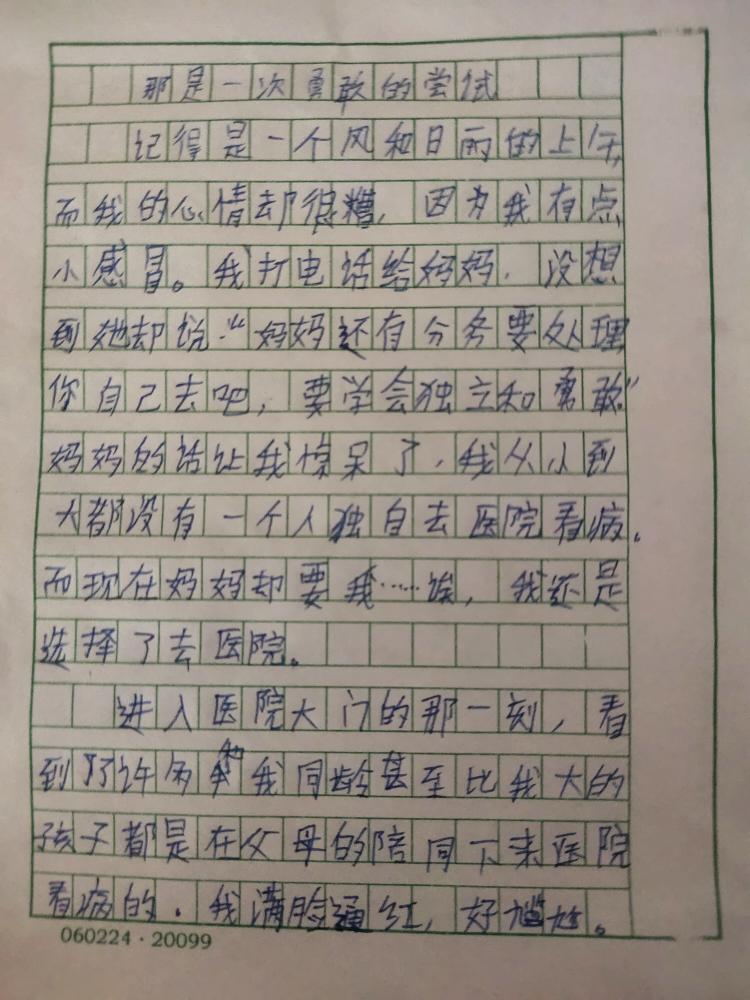 那是一次勇敢的尝试
记得是一个风和日雨的上午,
而我的心情却很糟,因为我有点
小感冒。我打电话给妈妈.没想
到她却说:“妈妈还有分务要处理
你自己去吧,要学会独立和勇敢”
妈妈的话让我惊呆了,我从小到
大都没有一个人独自去医院看病.
而现在妈妈却要我……唉,我还是
选择了去医院。
进入医院大门的那一刻,看
到了许多和我同龄甚至比我大的
孩子都是在父母的陪同下来医院
看病的.我满脸通红,好尴尬。
060224·20099